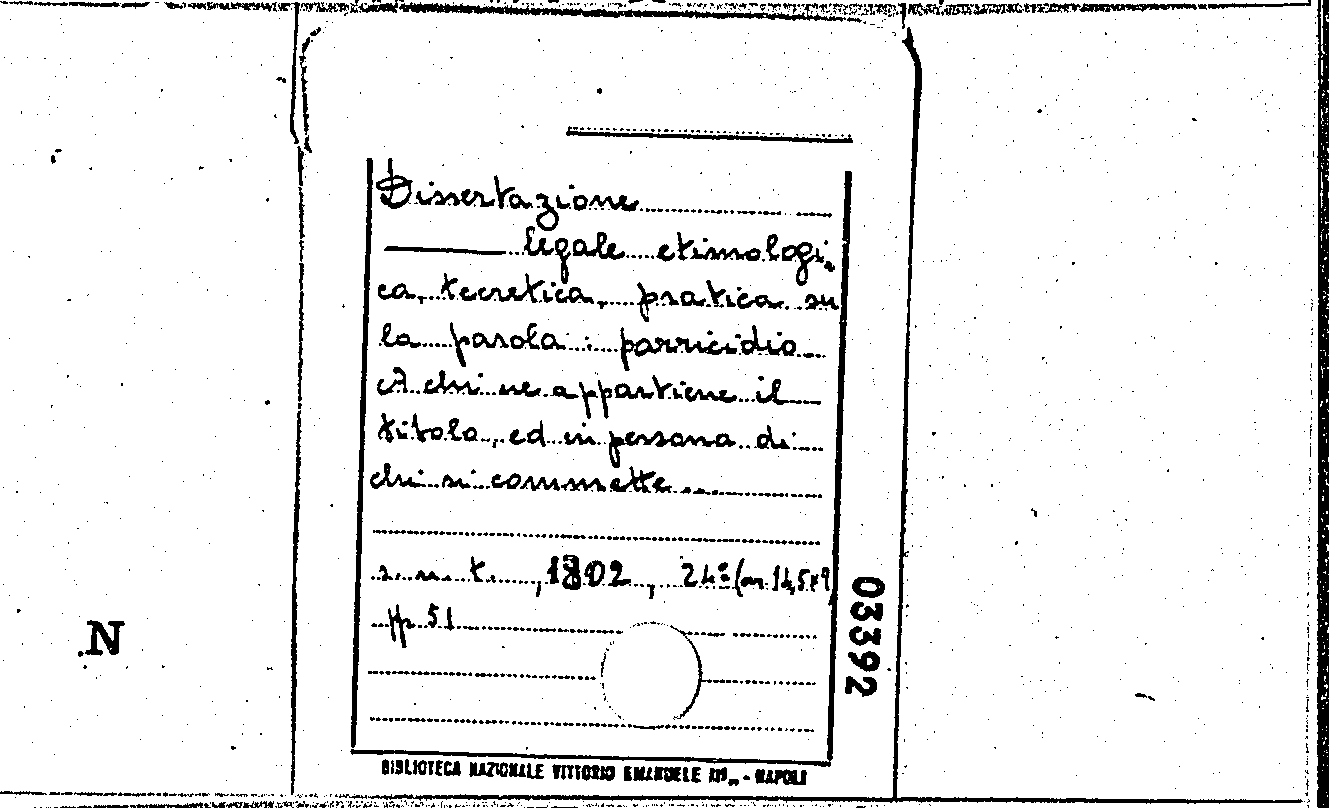 Dissertazione
legale etimologi-
ca, teoretica, pratica su
la parola : parricidio
A chi ne appartiene il
titolo, ed in persona di
chi si commette..
s. n. t. , 1802 , 24º (cm 14,5x9)
pp. 51
03392
N
BIBLIOTECA NAZIONALE VITTORIO EMANUELE III„ - NAPOLI